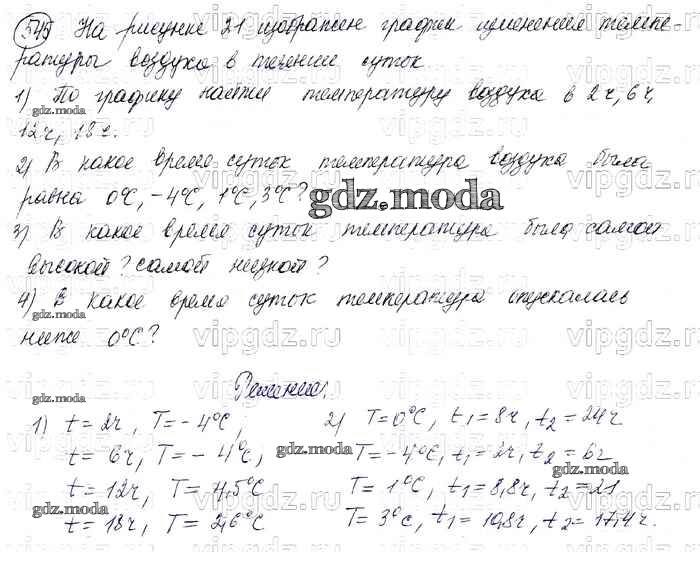 545 На рисунке 21 изображен график изменения темпе-
ратуры воздуха в течении суток.
1) По графику найти температуру воздуха в 2 ч, 6 ч,
12 ч, 18 ч.
2) В какое время суток температура воздуха была
равна 0°C, -4°C, 1°C, 3°C?
3) В какое время суток температура была самой
высокой? самой низкой?
4) В какое время суток температура опускалась
ниже 0°C?
Решение.
1) t = 2ч, T = -4°C, 2) T = 0°C, t1 = 8ч, t2 = 24ч
t = 6ч, T = -4°C, T = -4°C, t1 = 2ч, t2 = 6ч
t = 12ч, T = 4,5°C T = 1°C, t1 = 8,8ч, t2 = 21
t = 18ч, T = 2,6°C T = 3°C, t1 = 10,8ч, t2 = 17,4ч.
gdz.moda
vipgdz.ru